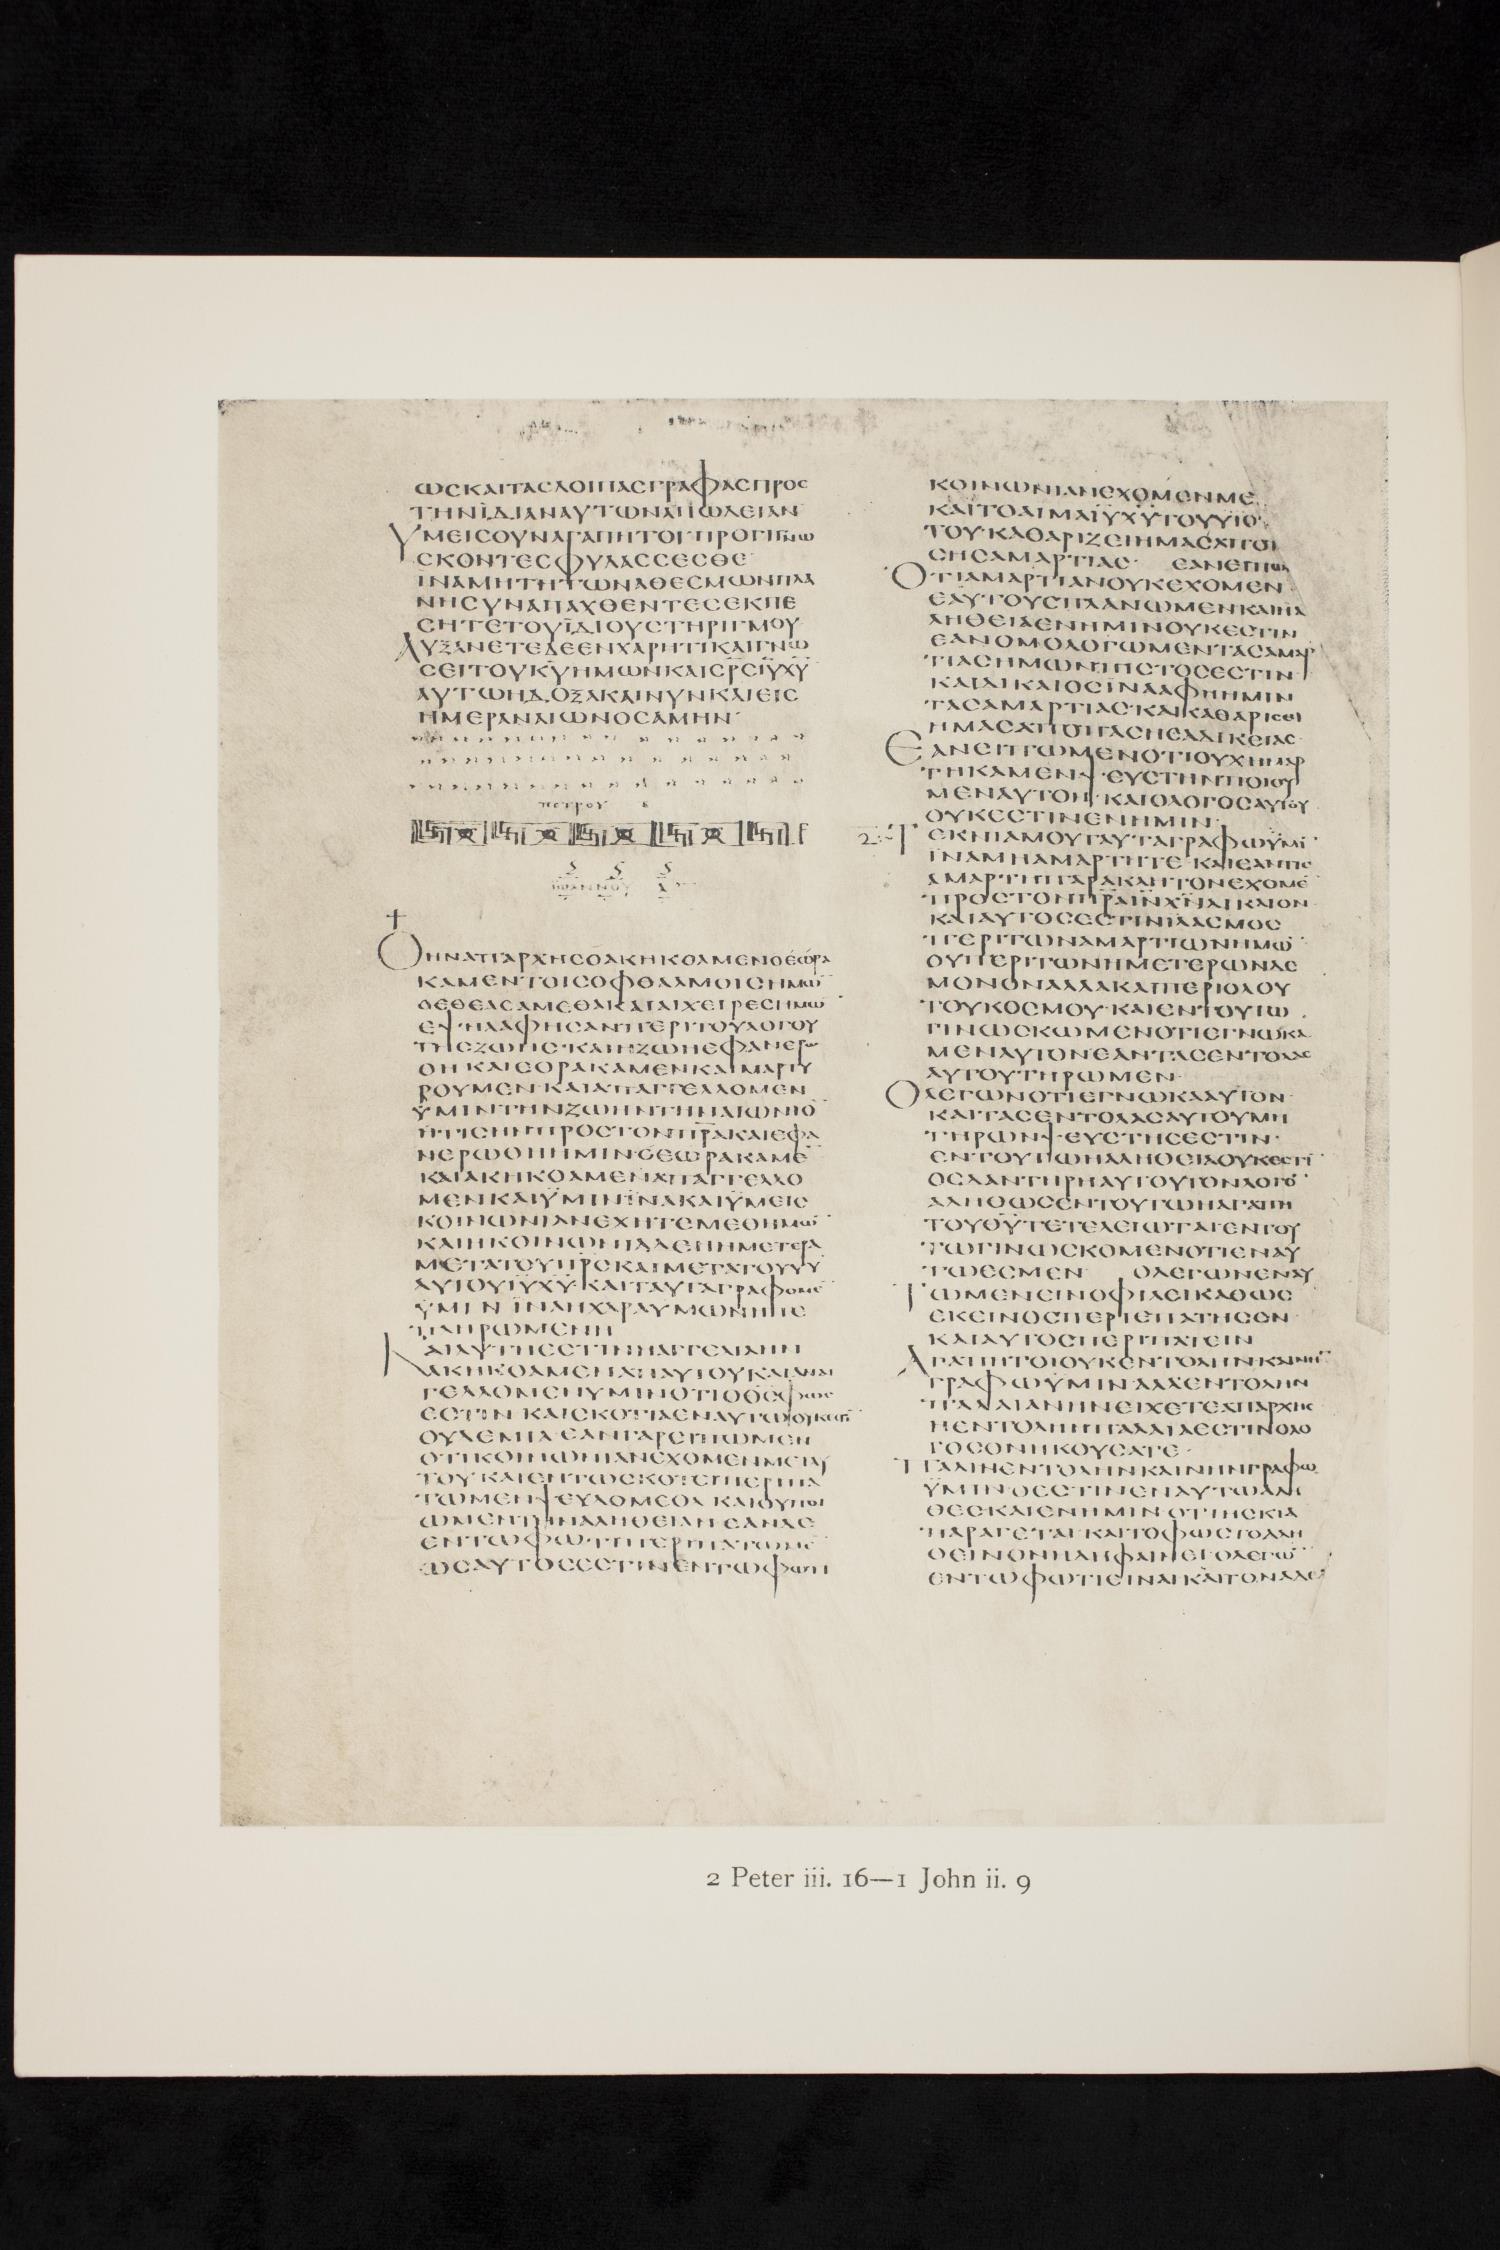 ωςκαιταςλοιπαςγραφαςπρος
τηνϊδιαναυτωναπωλειαν
Υμειςουναγαπητοιπρογινω
σκοντεςφυλασσεσθε
ιναμητητωναθεσμωνπλα
νησυναπαχθεντεςεκπε
σητετουϊδιουστηριγμου
Αυξανετεδεενχαρητικαιγνω
σειτουκ̅υ̅ημωνκαισ̅ρ̅σι̅υ̅χ̅υ̅
αυτωηδοξακαινυνκαιεις
ημεραναιωνοςαμην
πετρου β
ιωαννου α
Οηναπαρχηςοακηκοαμενοεωρα
καμεντοιςοφθαλμοιςημω̅
οεθεασαμεθακαιαιχειρεςημω̅
εψηλαφησανπεριτουλογου
τηςζωης·καιηζωηεφανερω
θηκαιεορακαμενκαιμαρτυ
ρουμενκαιαπαγγελλομεν
ϋμιντηνζωηντηναιωνιο̅
ητιςηνπροςτονπ̅ρ̅ακαιεφα
νερωθηημιν·οεωρακαμε̅
καιακηκοαμεναπαγγελλο
μενκαιϋμινϊνακαιϋμεις
κοινωνιανεχητεμεθημω̅
καιηκοινωνιαδεηημετερα
μετατουπ̅ρ̅ςκαιμετατουυ̅υ̅
αυτουι̅υ̅χ̅υ̅·καιταυταγραφομε̅
ϋμινϊναηχαραυμωνητε
πληρωμενη
Καιαυτηεστινηαγγελιαην
ακηκοαμεναπαυτουκαιαναγ
γελλομενυμινοτιοθ̅ς̅φως
εστινκαισκοτιαεναυτωουκεστι̅
ουδεμια·εανγαρειπωμεν
οτικοινωνιανεχομενμεταυ
τουκαιεντωσκοτειπεριπα
τωμενψευδομεθακαιουποι
ωμεντηναληθειανεανδε
εντωφωτιπεριπατωμε̅
ωςαυτοςεστινεντωφωτι
κοινωνιανεχομενμε
καιτοαιμαι̅υ̅χ̅υ̅τουυ̅υ̅
του·καθαριζειημαςαπο
σησαμαρτιας· εανειπω
Οτιαμαρτιανουκεχομεν
εαυτουςπλανωμενκαιηα
ληθειαενημινουκεστιν
εανομολογωμενταςαμαρ
τιαςημωνπιστοςεστιν
καιδικαιοςϊνααφηημιν
ταςαμαρτιας·καικαθαρισει
ημαςαποπασηςαδικειας
Εανειπωμενοτιουχημαρ
τηκαμενψευστηνποιου
μεναυτον·καιολογοςαυτου
ουκεστινενημιν·
Τεκνιαμουταυταγραφωϋμι̅
ϊναμηαμαρτητε·καιεαντις
αμαρτηπαρακλητονεχομε̅
προςτονπ̅ρ̅αι̅ν̅χ̅ν̅δικαιον
καιαυτοςεστινϊλασμος
περιτωναμαρτιωνημω̅
ουπεριτωνημετερωνδε
μονοναλλακαιπεριολου
τουκοσμου·καιεντουτω
γινωσκωμενοτιεγνωκα
μεναυτονεανταςεντολας
αυτουτηρωμεν
Ολεγωνοτιεγνωκααυτον
καιταςεντολαςαυτουμη
τηρωνψευστηςεστιν·
εντουτωηαληθειαουκεστι̅
οςδαντηρηαυτουτονλογο̅
αληθωςεντουτωηαγαπη
τουθ̅υ̅τετελειωταιεντου
τωγινωσκομενοτιεναυ
τωεσμεν ολεγωνεναυ
τωμενεινοφιλεικαθως
εκεινοςπεριεπατησεν
καιαυτοςπεριπατειν
Αγαπητοιουκεντοληνκαινη̅
γραφωϋμιναλλεντολην
παλαιανηνειχετεαπαρχης
ηεντοληηπαλαιαεστινολο
γοςονηκουσατε
Παλινεντοληνκαινηνγραφω
ϋμινοεστινεναυτωαλη
θεςκαιενημινοτιησκια
παραγεταικαιτοφωςτοαλη
θεινονηδηφαινει·ολεγω̅
εντωφωτιειναικαιτοναδελ
2 Peter iii. 16—1 John ii. 9